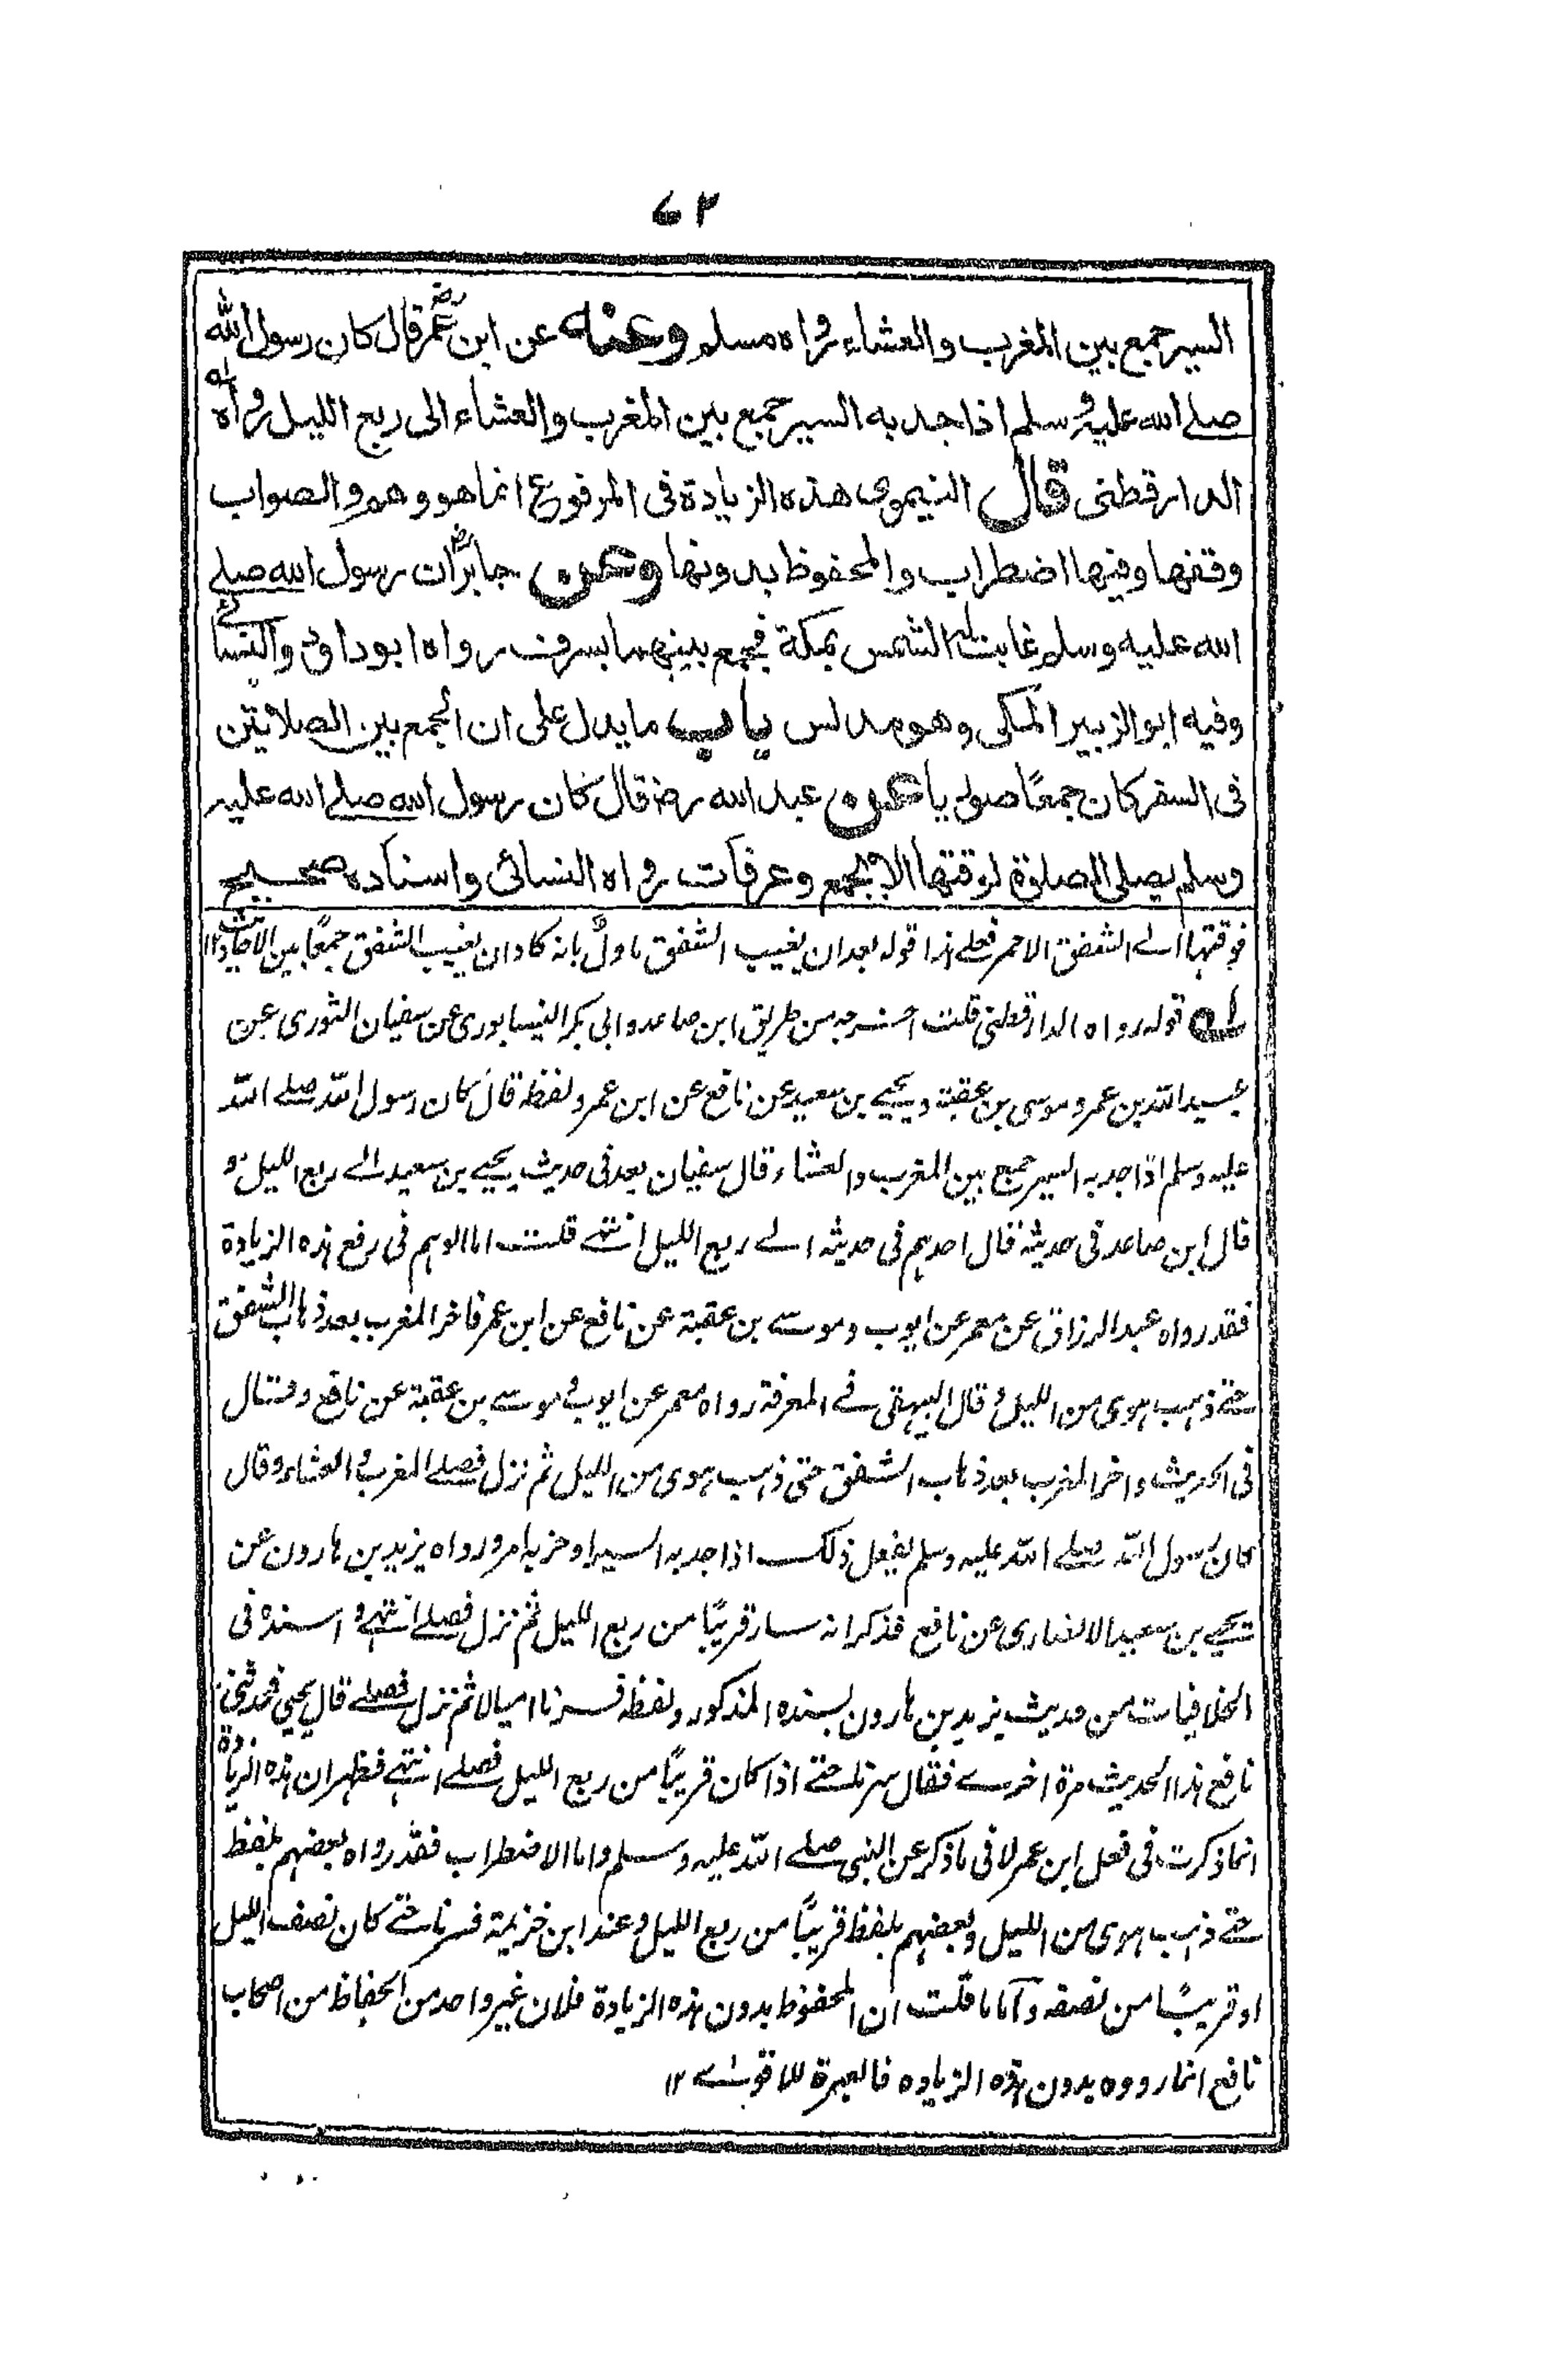 ٧٣
السير جمع بين المغرب والعشاء رواه مسلم وعنه عن ابن عمر رض قال كان رسول الله
صلے الله عليه وسلم اذا جد به السير جمع بين المغرب والعشاء الى ربع الليل رواه له
الدارقطنى قال النيموى هذه الزيادة فى المرفوع انما هو وهم والصواب
وقفها وفيها اضطراب والمحفوظ بدونها وعن جابر رض ان رسول الله صلے
الله عليه وسلم غابت له الشمس بمكة فجمع بينهما بسرف رواه ابو داؤد والنسائے
وفيه ابو الزبير المكى وهو مدلس باب ما يدل على ان الجمع بين الصلاتين
فى السفر كان جمعًا صوريا عن عبد الله رض قال كان رسول الله صلے الله عليه
وسلم يصلى الصلوة لوقتها الا بجمع وعرفات رواه النسائى واسناده صحيح
فوقتها الے الشفق الاحمر فعلے هذا قوله بعد ان يغيب الشفق ماول بانه كاد ان يغيب الشفق جمعًا بين الاحاديث ١٢
له قوله رواه الدارقطنى قلت اخرجه من طريق ابن صاعد وابى بكر النيسابورى عن سفيان الثورى عن
عبيد الله بن عمر و موسى بن عقبة ويحيے بن سعيد عن نافع عن ابن عمر ولفظه قال كان رسول الله صلے الله
عليه وسلم اذا جد به السير جمع بين المغرب والعشاء قال سفيان بعد فى حديث يحيے بن سعيد الے ربع الليل و
قال ابن صاعد فى حديثه قال احدهم فى حديثه الے ربع الليل انتهے قلت اما الوهم فى رفع هذه الزيادة
فقد رواه عبد الرزاق عن معمر عن ايوب وموسے بن عقبة عن نافع عن ابن عمر فاخر المغرب بعد ذهاب الشفق
حتے ذهب هوى من الليل و قال البيهقى فے المعرفة رواه معمر عن ايوب و موسے بن عقبة عن نافع وقال
فى الحديث واخر المغرب بعد ذهاب الشفق حتى ذهب هوى من الليل ثم نزل فصلے المغرب و العشاء وقال
كان رسول الله صلے الله عليه وسلم يفعل ذلك اذا جد به السير او حزبه امر ورواه يزيد بن هارون عن
يحيے بن سعيد الانصارى عن نافع فذكر انه سار قريبًا من ربع الليل ثم نزل فصلے انتهے و اسنده فى
الخلافيات من حديث يزيد بن هارون بسنده المذكور ولفظه فسرنا اميالا ثم نزل فصلے قال يحيى فحدثنى
نافع هذا الحديث مرة اخرے فقال سرنا حتے اذا كان قريبًا من ربع الليل فصلے انتهے فظهر ان هذه الزيادة
انما ذكرت فى فعل ابن عمر لا فى ما ذكر عن النبى صلے الله عليه وسلم واما الاضطراب فقد رواه بعضهم بلفظ
حتے ذهب هوى من الليل وبعضهم بلفظ قريبًا من ربع الليل و عند ابن خزيمة فسرنا حتے كان نصف الليل
او قريبًا من نصفه واما ما قلت ان المحفوظ بدون هذه الزيادة فلان غير واحد من الحفاظ من اصحاب
نافع انما رووه بدون هذه الزياده فالعبرة للاقوے ١٢